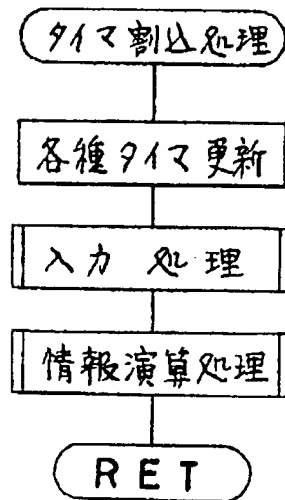 タイマ割込処理
各種タイマ更新
入力処理
情報演算処理
RET